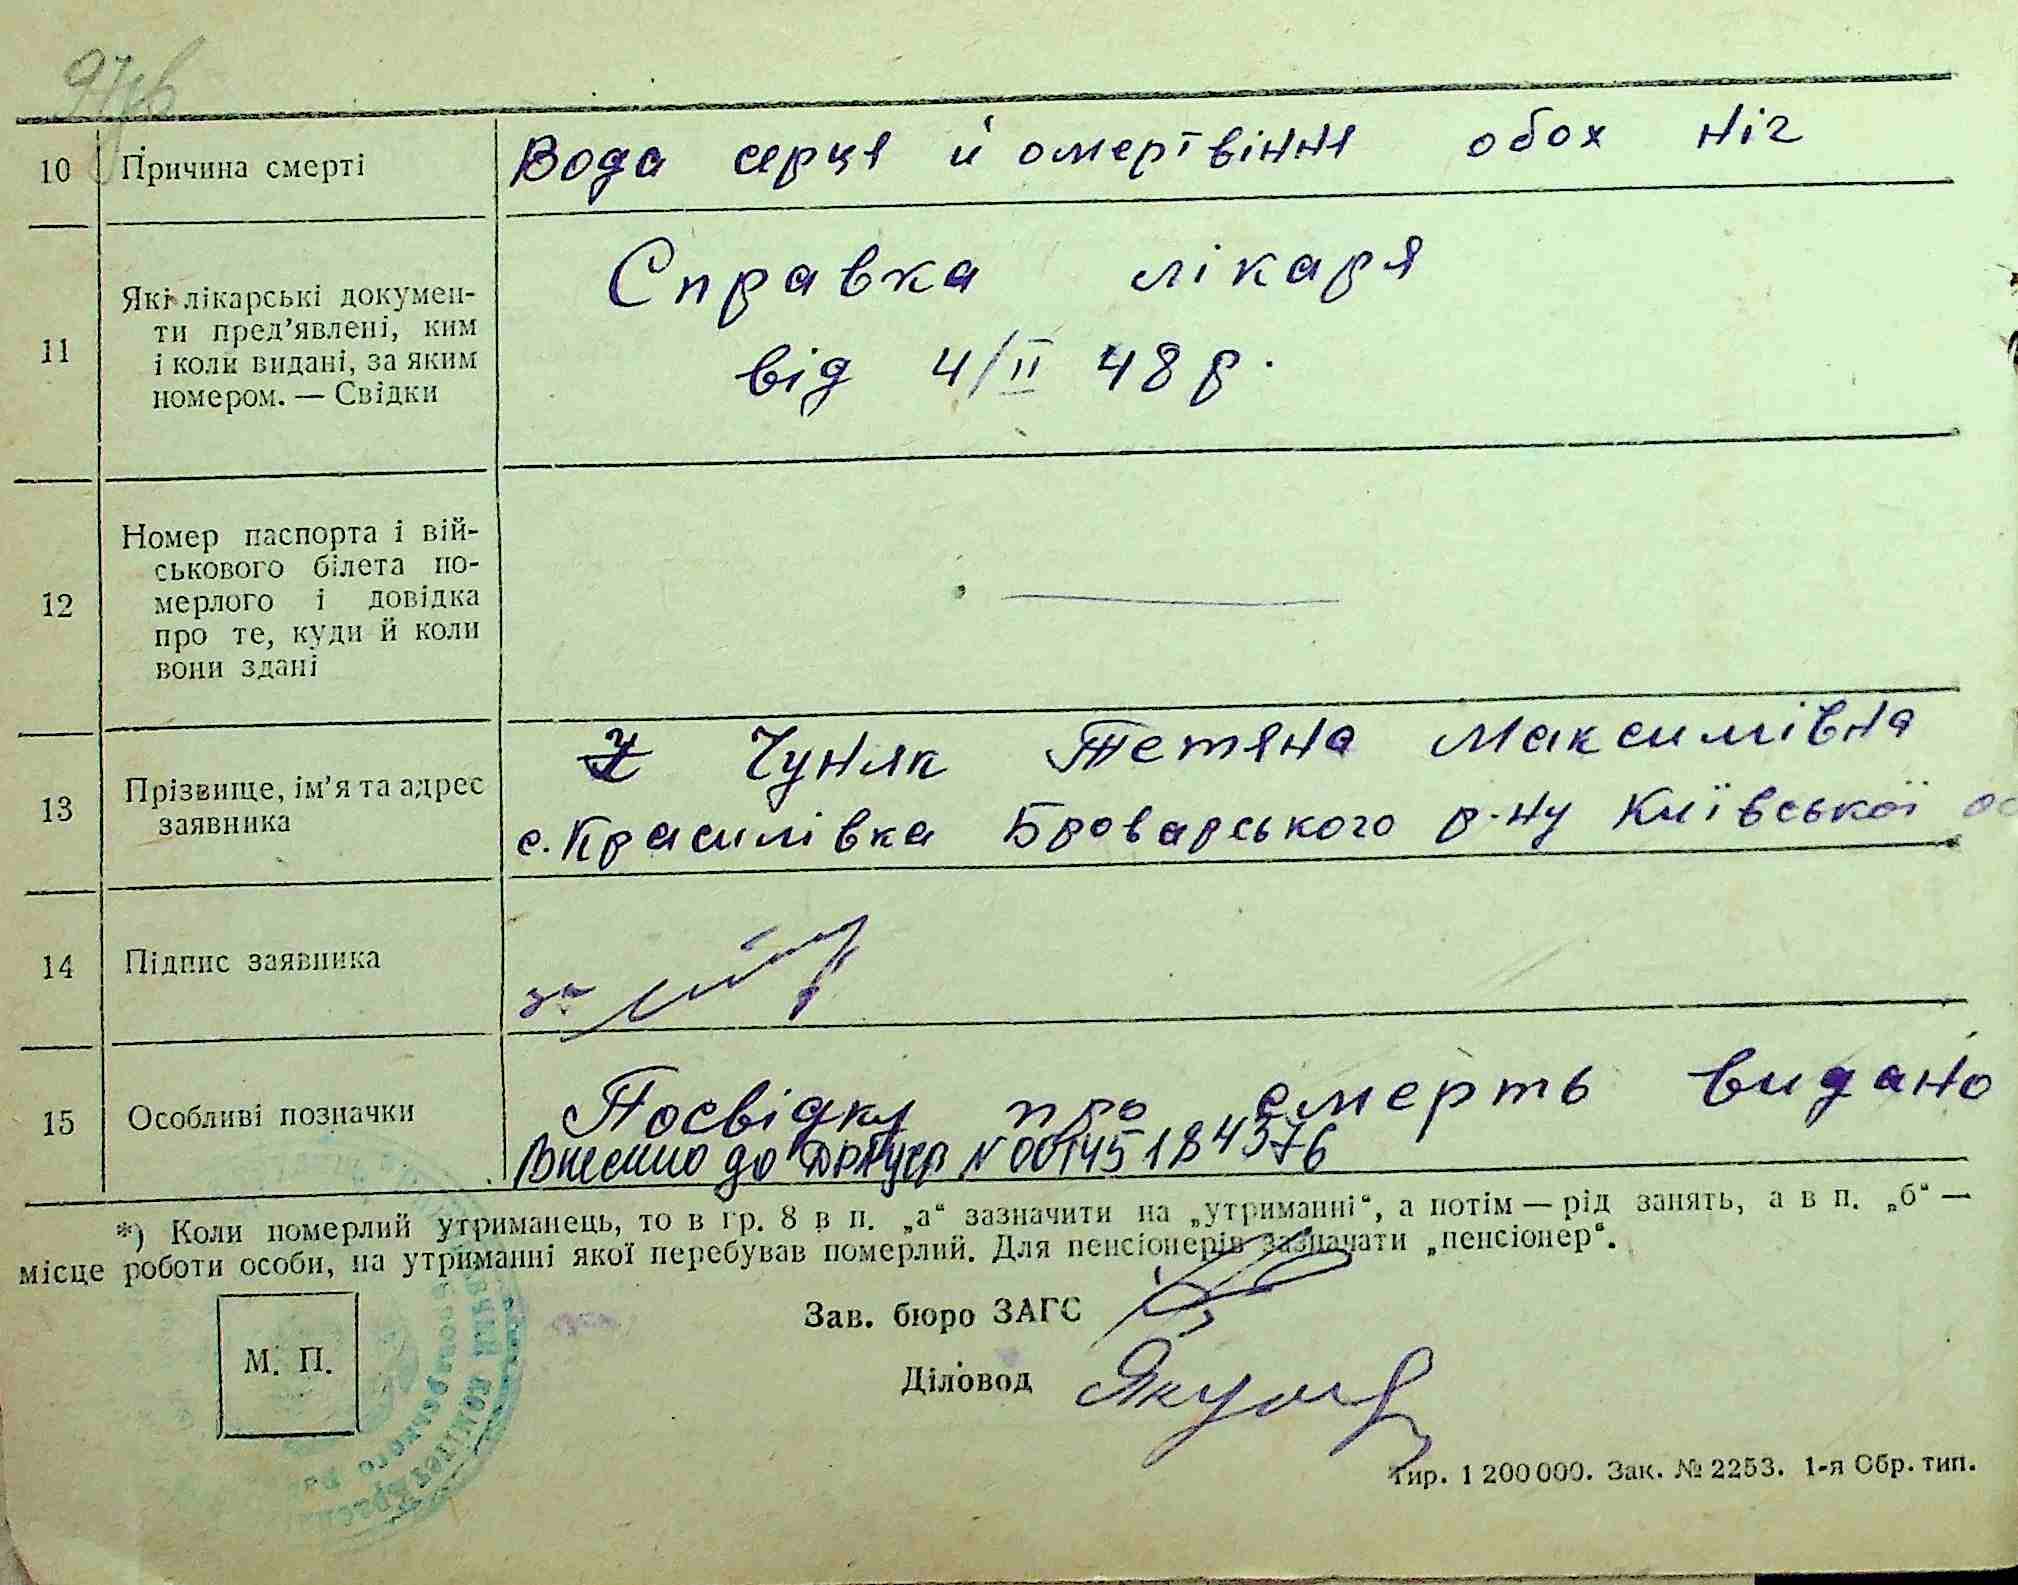 10 Причина смерті Вода серця й омертвіння обох ніг
11 Які лікарські докумен-
ти пред'явлені, ким
і коли видані, за яким
номером. — Свідки
Справка лікаря
від 4/II 48 р.
12 Номер паспорта і вій-
ськового білета по-
мерлого і довідка
про те, куди й коли
вони здані
13 Прізвище, ім'я та адрес
заявника
Чуняк Тетяна Максимівна
с. Красилівка Броварського р-ну Київської об
14 Підпис заявника
за
15 Особливі позначки
Посвідку про смерть видано
Внесено до N 00145184376
*) Коли померлий утриманець, то в гр. 8 в п. „а“ зазначити на „утриманні“, а потім — рід занять, а в п. „б“ —
місце роботи особи, на утриманні якої перебував померлий. Для пенсіонерів зазначати „пенсіонер“.
Зав. бюро ЗАГС
М. П.
Діловод
Тир. 1 200 000. Зак. № 2253. 1-я Обр. тип.